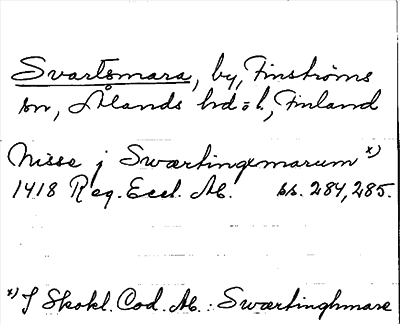 Svartsmara, by, Finströms
sn, Ålands hd o. l, Finland
Nisse j Swærtingxmarum x)
1418 Reg. Eccl. Ab. ss. 284, 285.
x) I Skokl. Cod. Ab.: Swærtinghmare